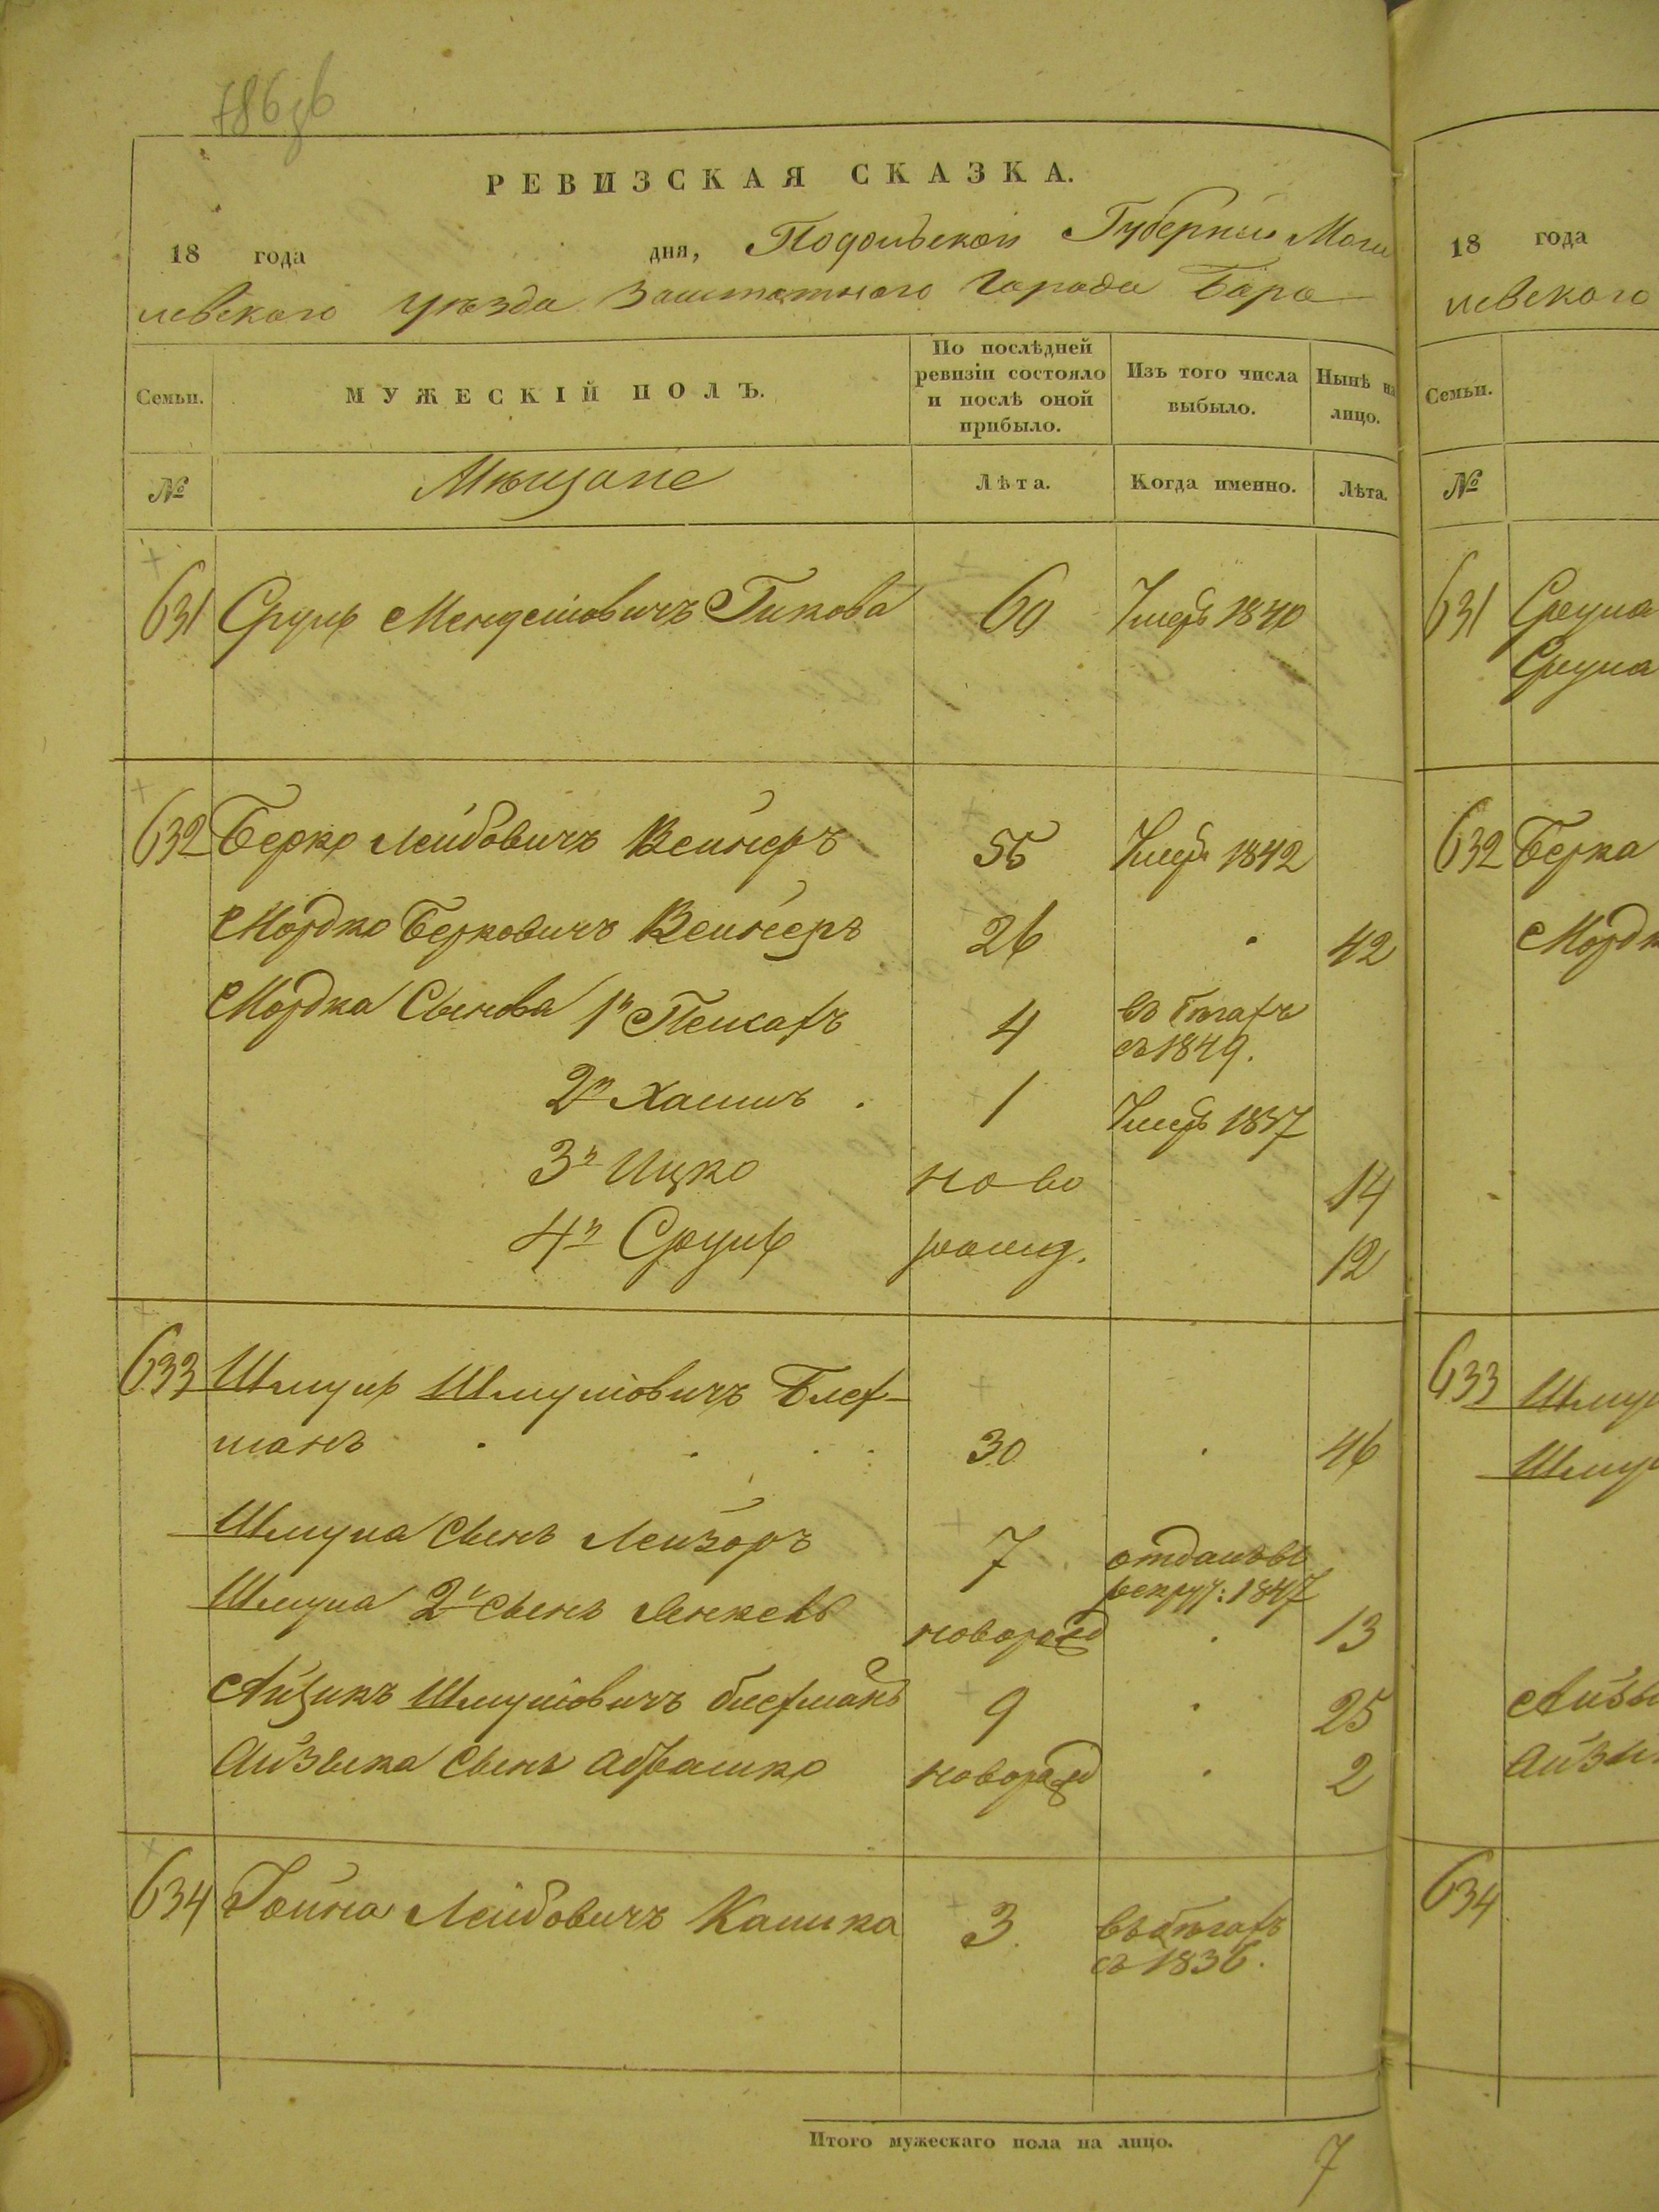 786зв
РЕВИЗСКАЯ СКАЗКА.
18 года дня, Подольской Губернии Моги
левского уѣзда Заштатного Города Бара
Семьи. МУЖЕСКІЙ ПОЛЪ. По послѣдней ревизіи состояло и послѣ оной прибыло. Изъ того числа выбыло. Нынѣ на лицо.
№ Мѣщане Лѣта. Когда именно. Лѣта.
631 Сруль Менделіовичъ Гикова 60 Умеръ 1840
632 Берко Лейбовичъ Вейнеръ 55 Умеръ 1842
Мордко Берковичъ Вейнеръ 26 . 42
Мордка Сынова 1й Пейсахъ 4 въ бѣгахъ
съ 1849.
2й Хаимъ . 1 Умеръ 1837
3й Ицко ново 14
4й Сруль рожд. 12
633 Шмуль Шмуліовичъ Блех-
манъ 30 . 46
Шмула Сынъ Лейзоръ 7 отданъ въ
рекрут: 1847
Шмула 2й Сынъ Янкель новорожд . 13
Айзикъ Шмуліовичъ блехманъ 9 . 25
Айзыка Сынъ Абрашко новорожд . 2
634 Гойна Лейбовичъ Кашка 3 въ бѣгахъ
съ 1836.
Итого мужескаго пола на лицо. 7
18 года
левского
Семьи.
№
631 Срула
Срула
632 Берка
Мордк
633 Шмул
Шмул
Айзы
Айзы
634